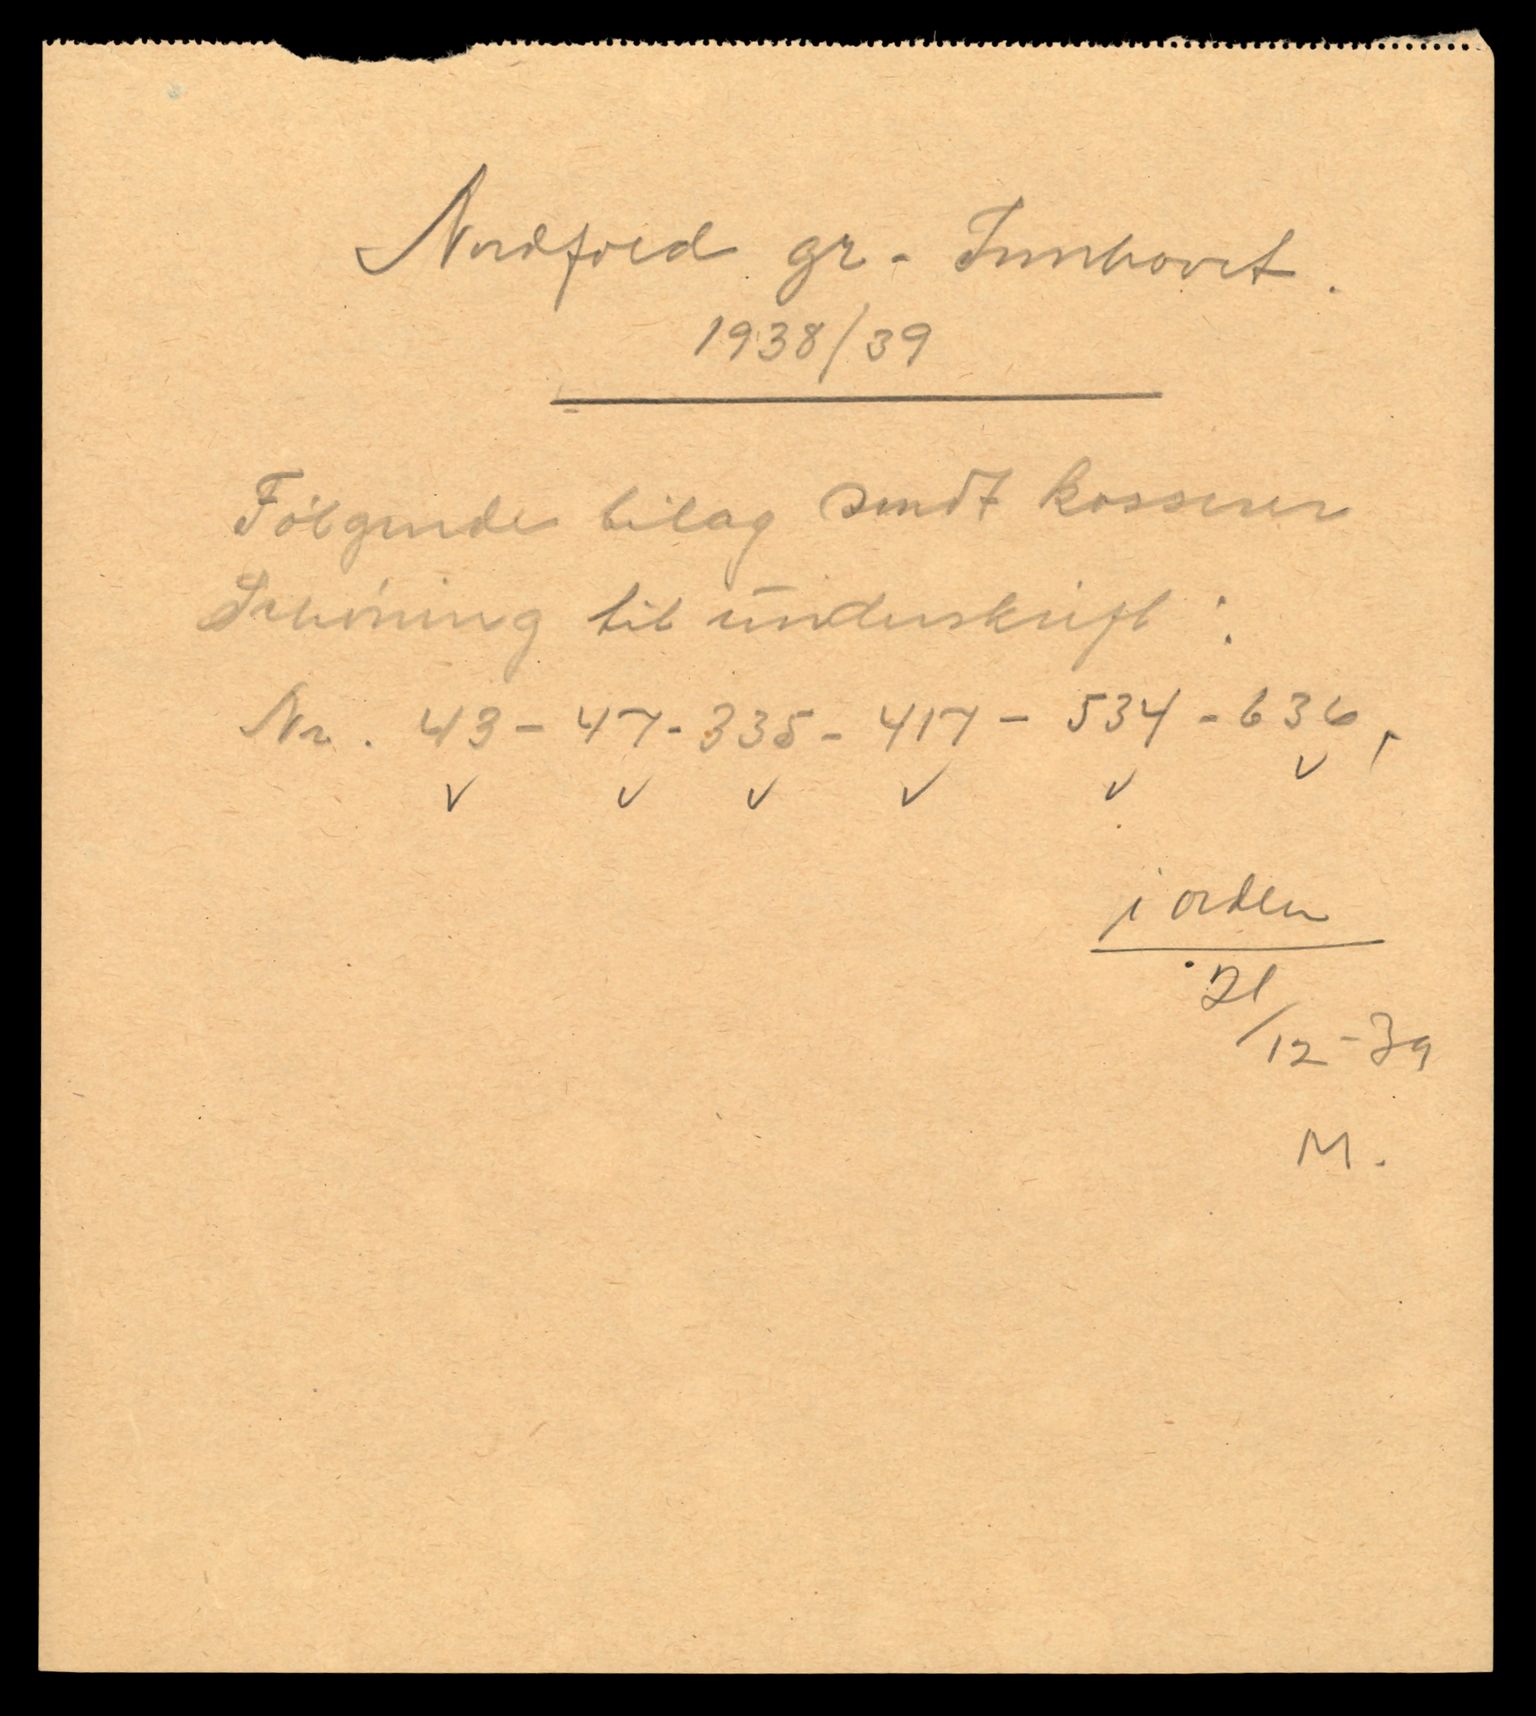 Nordfold gr. - Innhavet.
1938/39
Følgende bilag sendt kasserer
Schøning til underskrift:
Nr. 43 - 47 - 335 - 417 - 534 - 636,
✓ ✓ ✓ ✓ ✓ ✓
i orden
21/12-39
M.